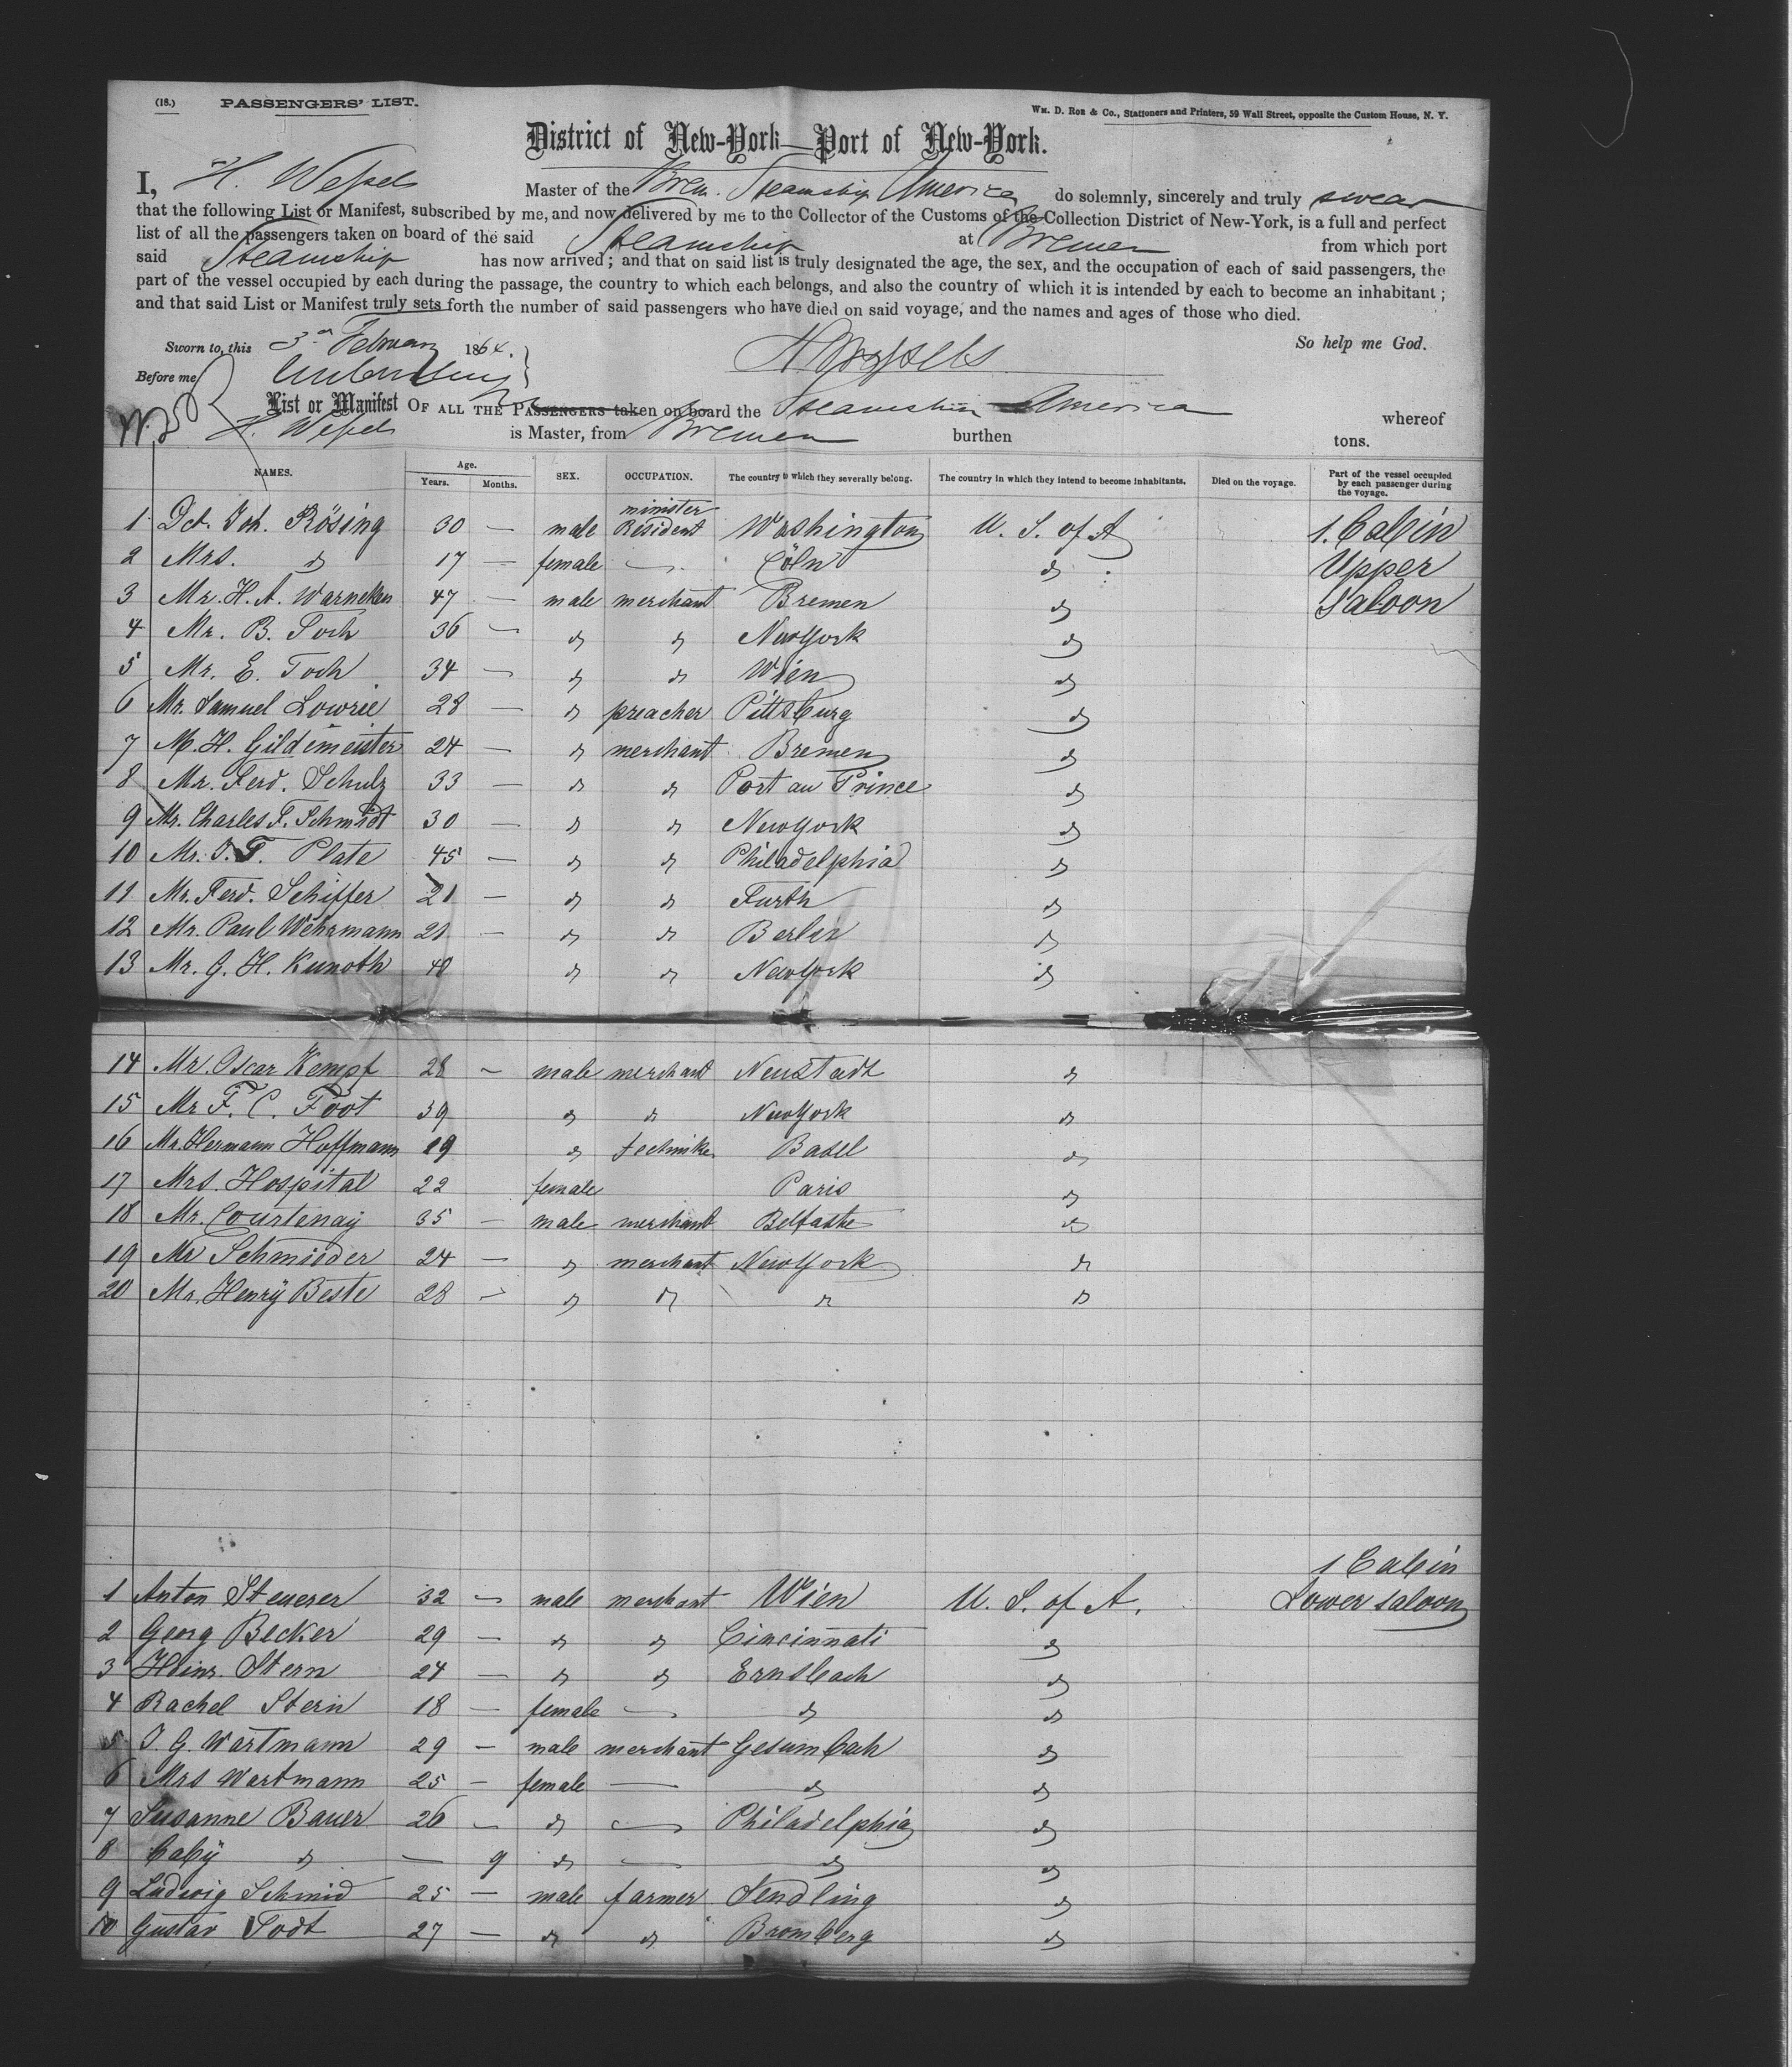 (18.) PASSENGERS' LIST.
WM. D. ROE & Co., Stationers and Printers, 59 Wall Street, opposite the Custom House, N. Y.
District of New-York—Port of New-York.
I, H. Wessels Master of the Brem. Steamship America do solemnly, sincerely and truly swear
that the following List or Manifest, subscribed by me, and now delivered by me to the Collector of the Customs of the Collection District of New-York, is a full and perfect
list of all the passengers taken on board of the said Steamship at Bremen from which port
said Steamship has now arrived; and that on said list is truly designated the age, the sex, and the occupation of each of said passengers, the
part of the vessel occupied by each during the passage, the country to which each belongs, and also the country of which it is intended by each to become an inhabitant;
and that said List or Manifest truly sets forth the number of said passengers who have died on said voyage, and the names and ages of those who died.
Sworn to, this 3rd February 1864. So help me God.
Before me H Wessels
List or Manifest OF ALL THE PASSENGERS taken on board the Steamship America whereof
H. Wessels is Master, from Bremen burthen tons.
NAMES. Age. Years. Months. SEX. OCCUPATION. The country to which they severally belong. The country in which they intend to become inhabitants. Died on the voyage. Part of the vessel occupied by each passenger during the voyage.
1 Dct. Joh. Rösing 30 — male minister Resident Washington U. S. of A 1. Cabin
2 Mrs. do 17 — female — Cöln do Upper
3 Mr. H. A. Warneken 47 — male merchant Bremen do Saloon
4 Mr. B. Toch 36 — do do NewYork do
5 Mr. E. Toch 34 — do do Wien do
6 Mr. Samuel Lowrie 28 — do preacher Pittsburg do
7 M. H. Gildemeister 24 — do merchant Bremen do
8 Mr. Ferd. Schulz 33 — do do Port au Prince do
9 Mr. Charles F. Schmidt 30 — do do NewYork do
10 Mr. J. F. Plate 45 — do do Philadelphia do
11 Mr. Ferd. Schiffer 21 — do do Furth do
12 Mr. Paul Wehrmann 21 — do do Berlin do
13 Mr. G. H. Kunoth 40 do do NewYork do
14 Mr. Oscar Kempf 28 — male merchant Neustadt do
15 Mr F. C. Foot 39 do do NewYork do
16 Mr. Hermann Hoffmann 19 do technike Basel do
17 Mrs. Hospital 22 female Paris do
18 Mr. Courtenay 35 — male merchant Belfaste do
19 Mr Schmidder 24 — do merchant NewYork do
20 Mr. Henry Beste 28 — do do do do
1 Cabin
1 Anton Steuerer 32 — male merchant Wien U. S. of A. Lower saloon
2 Georg Becker 29 — do do Cincinnati do
3 Heinr. Stern 24 — do do Ernsbach do
4 Rachel Stern 18 — female — do do
5 J. G. Wartmann 29 — male merchant Gesumbach do
6 Mrs Wartmann 25 — female — do do
7 Susanne Bauer 26 — do — Philadelphia do
8 baby do — 9 do — do do
9 Ludwig Schmid 25 — male farmer Sendling do
10 Gustav Todt 27 — do do Bromberg do